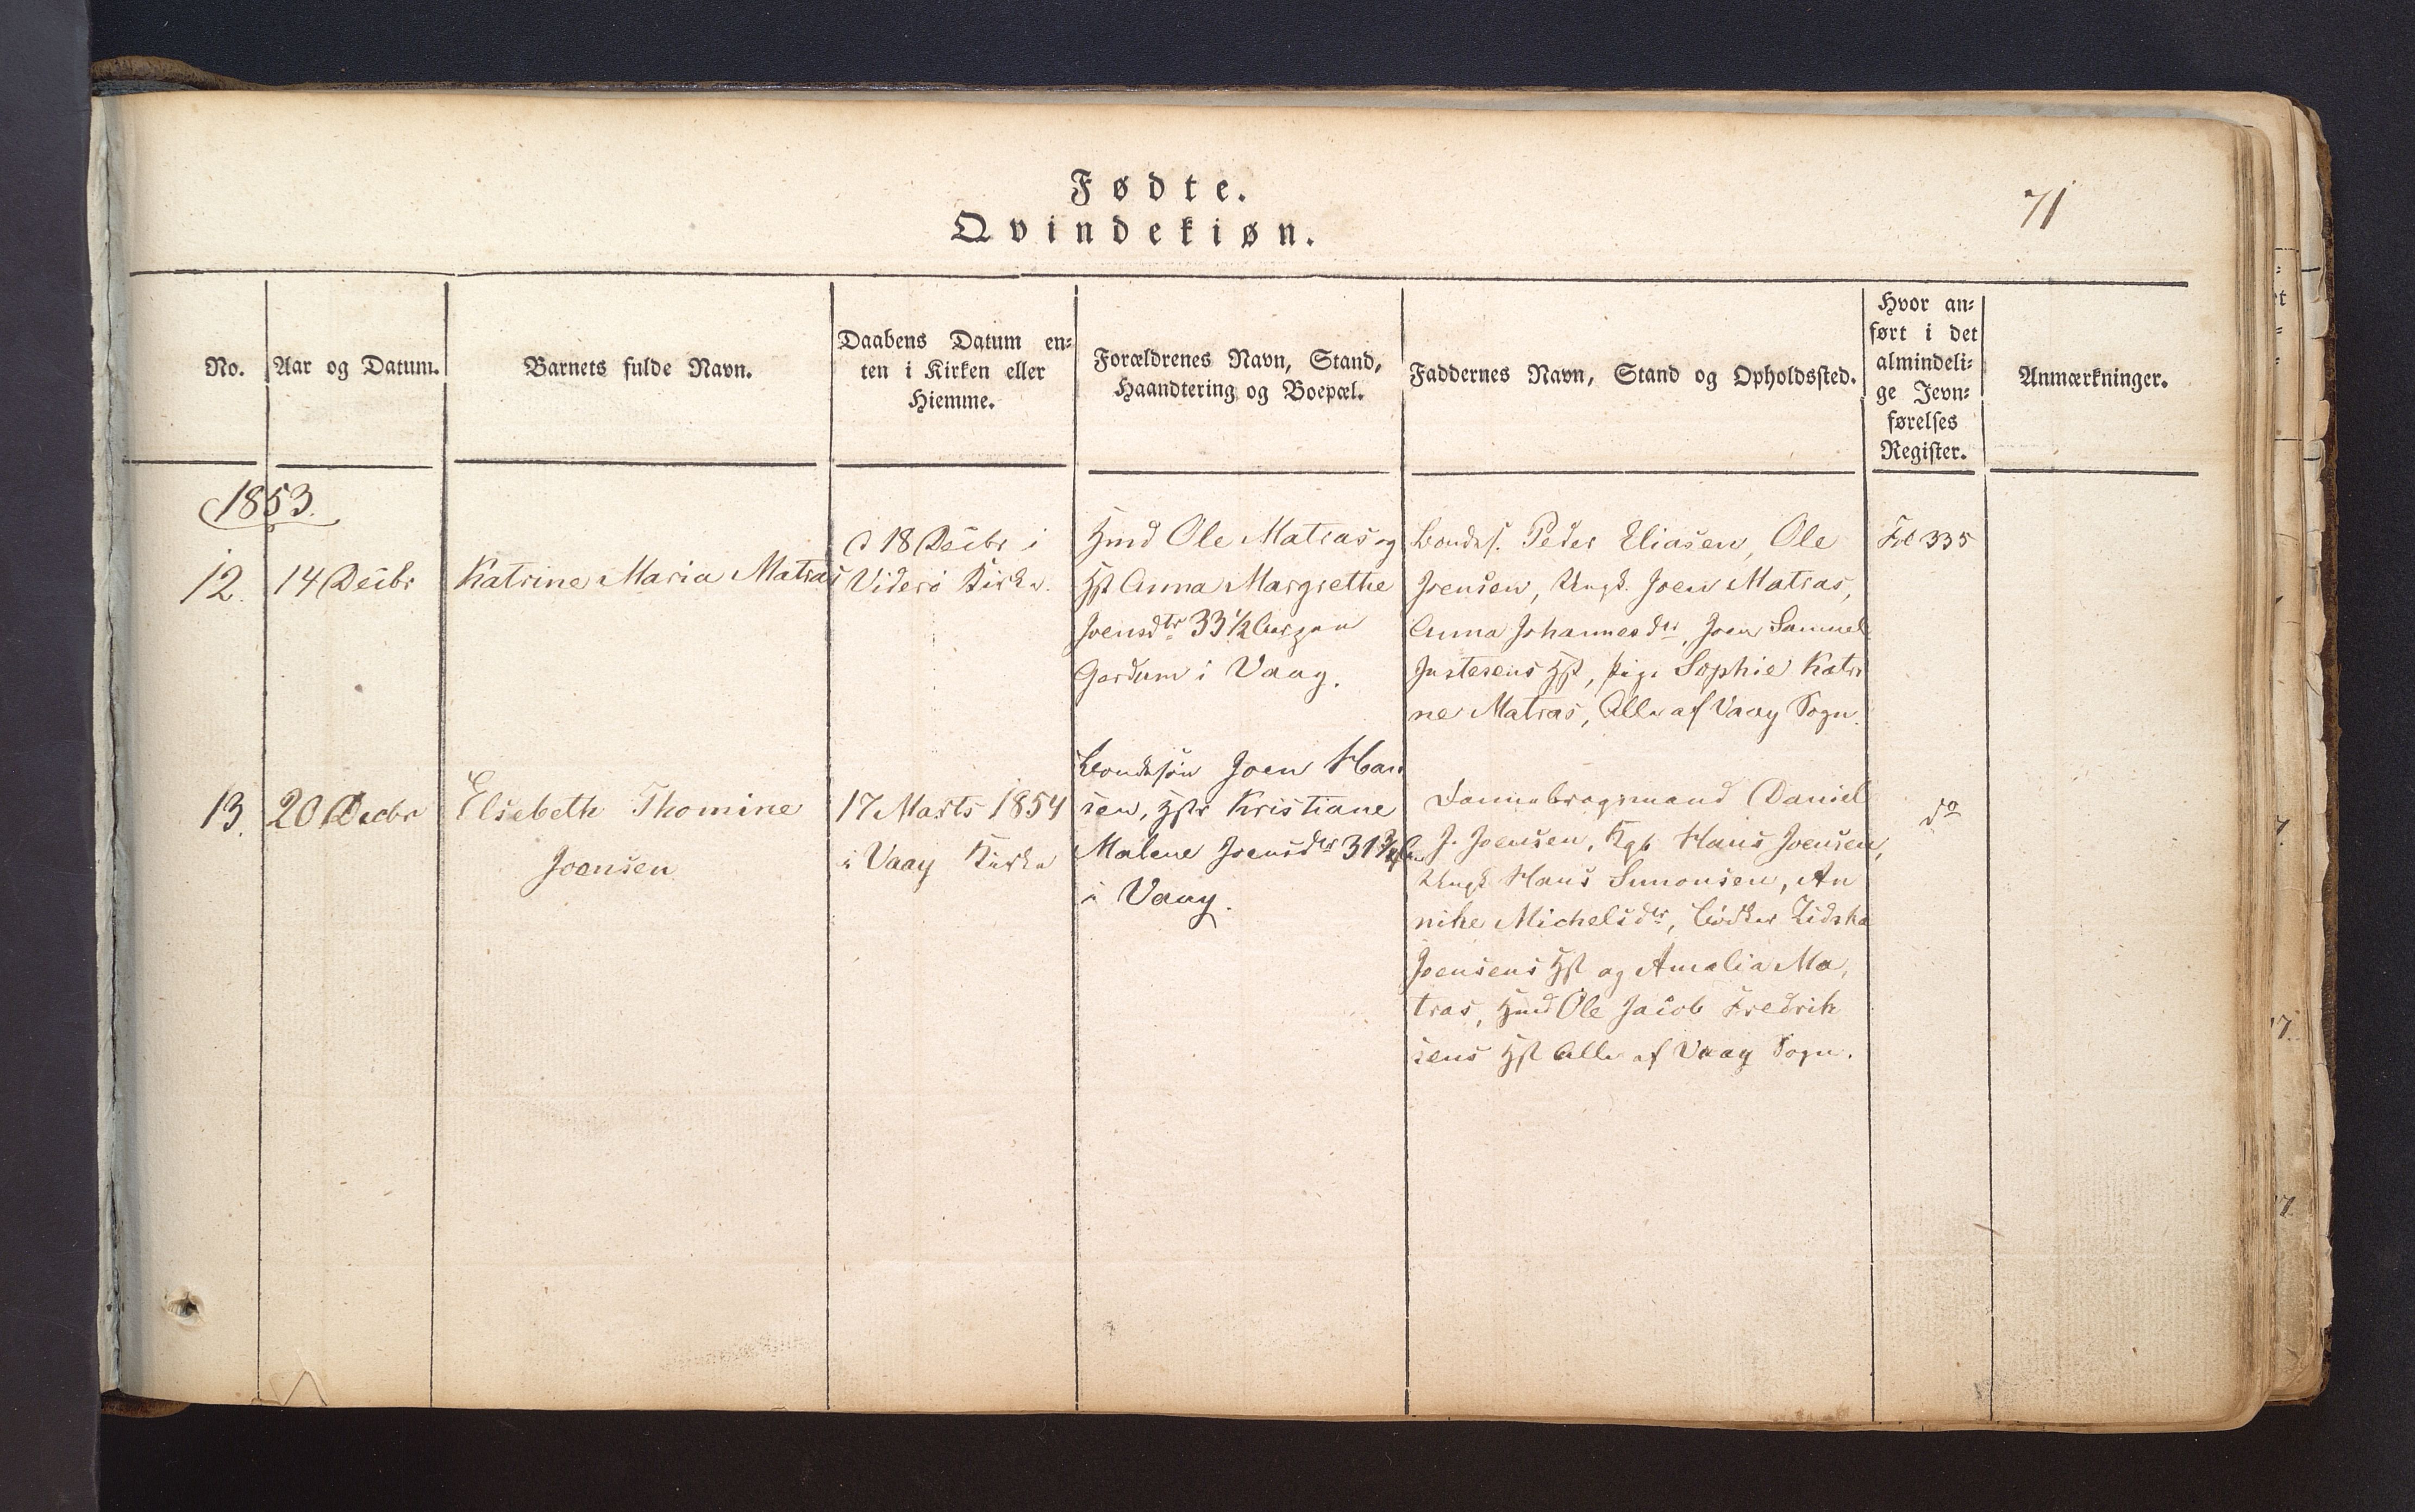 Fødte.
Qvindekiøn.
71
No.
Aar og Datum.
Barnets fulde Navn.
Daabens Datum en-
ten i Kirken eller
Hiemme.
Forældrenes Navn, Stand,
Haandtering og Boepæl.
Faddernes Navn, Stand og Opholdssted.
Hvor an-
ført i det
almindeli-
ge Jevn-
førelses
Register.
Anmærkninger.
1853.
12.
14 Decbr
Katrine Maria Matras
d 18 Decbr i
Viderø Kirke.
Hmd Ole Matras og
Hst Anna Margrethe
Joensdtr 33 1/2 Aar
Gardum i Vaag.
Bondes. Peder Eliasen, Ole
Joensen, Ungk. Joen Matras,
Anna Johannesdtr, Joen Samuel
Justesens Hst, Pige Sophie Katri
ne Matras, Alle af Vaag Sogn.
Fol 335
13.
20 Decbr
Elsebeth Thomine
Joensen
17 Marts 1854
i Vaag Kirke
Bondesøn Joen Han
sen, Hstr Kristiane
Malene Joensdtr 31
i Vaag.
Dannebrogsmand Daniel
J. Joensen, Kgb Hans Joensen,
Ungk Hans Simonsen, An
nike Michelsdtr, Bødker
Joensens Hst og Amalia Ma,
tras, Hmd Ole Jacob Fredrik
sens Hst Alle af Vaag Sogn.
do